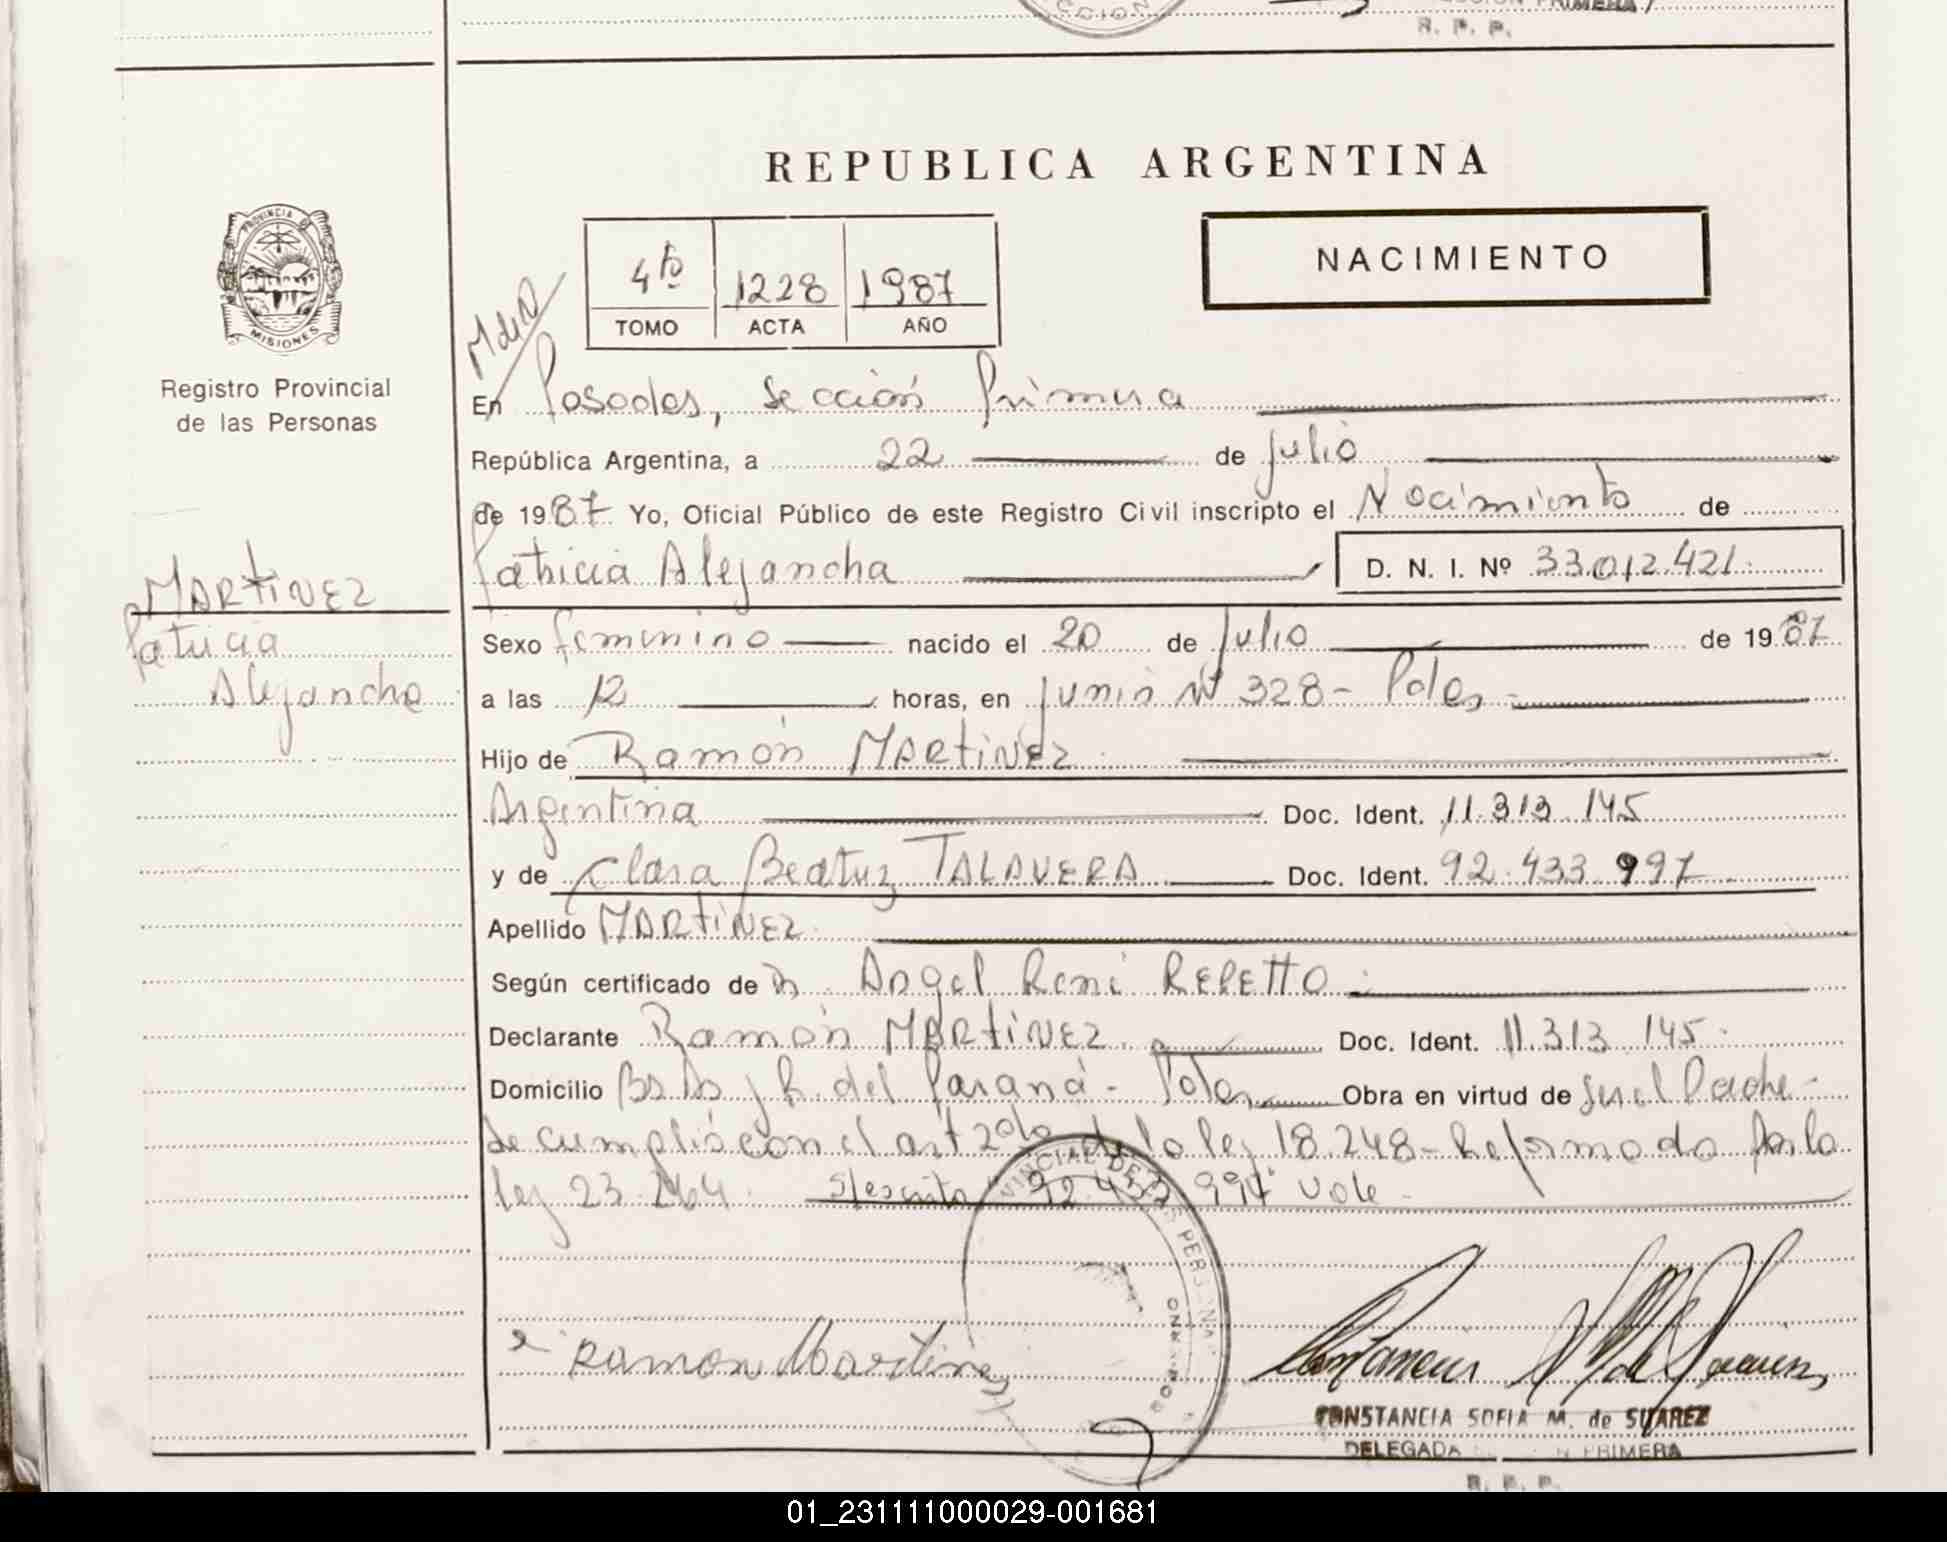 R. P. P.
REPUBLICA ARGENTINA
PROVINCIA DE
MISIONES
Registro Provincial
de las Personas
4to 1228 1987
TOMO ACTA AÑO
NACIMIENTO
En Posadas, Sección Primera
República Argentina, a 22 de Julio
de 1987 Yo, Oficial Público de este Registro Civil inscripto el Nacimiento de
Patricia Alejandra D. N. I. Nº 33.012.421
MARTINEZ
Patricia
Alejandra
Sexo femenino nacido el 20 de Julio de 1987
a las 12 horas, en Junin Nº 328 - Pdas
Hijo de Ramón MARTINEZ
Argentina Doc. Ident. 11.313.145
y de Clara Beatriz TALAVERA Doc. Ident. 92.433.997
Apellido MARTINEZ
Según certificado de Dr. Angel René REPETTO
Declarante Ramón MARTINEZ Doc. Ident. 11.313.145
Domicilio Bs As y R. del Paraná - Pdas Obra en virtud de ser el Padre -
Se cumplió con el art 2do de la ley 18.248 - Reformado por la
ley 23.264. S/escrito 92.433.997 vale -
Ramon Martinez
CONSTANCIA SOFIA M. de SUAREZ
DELEGADA PRIMERA
R. P. P.
01_231111000029-001681